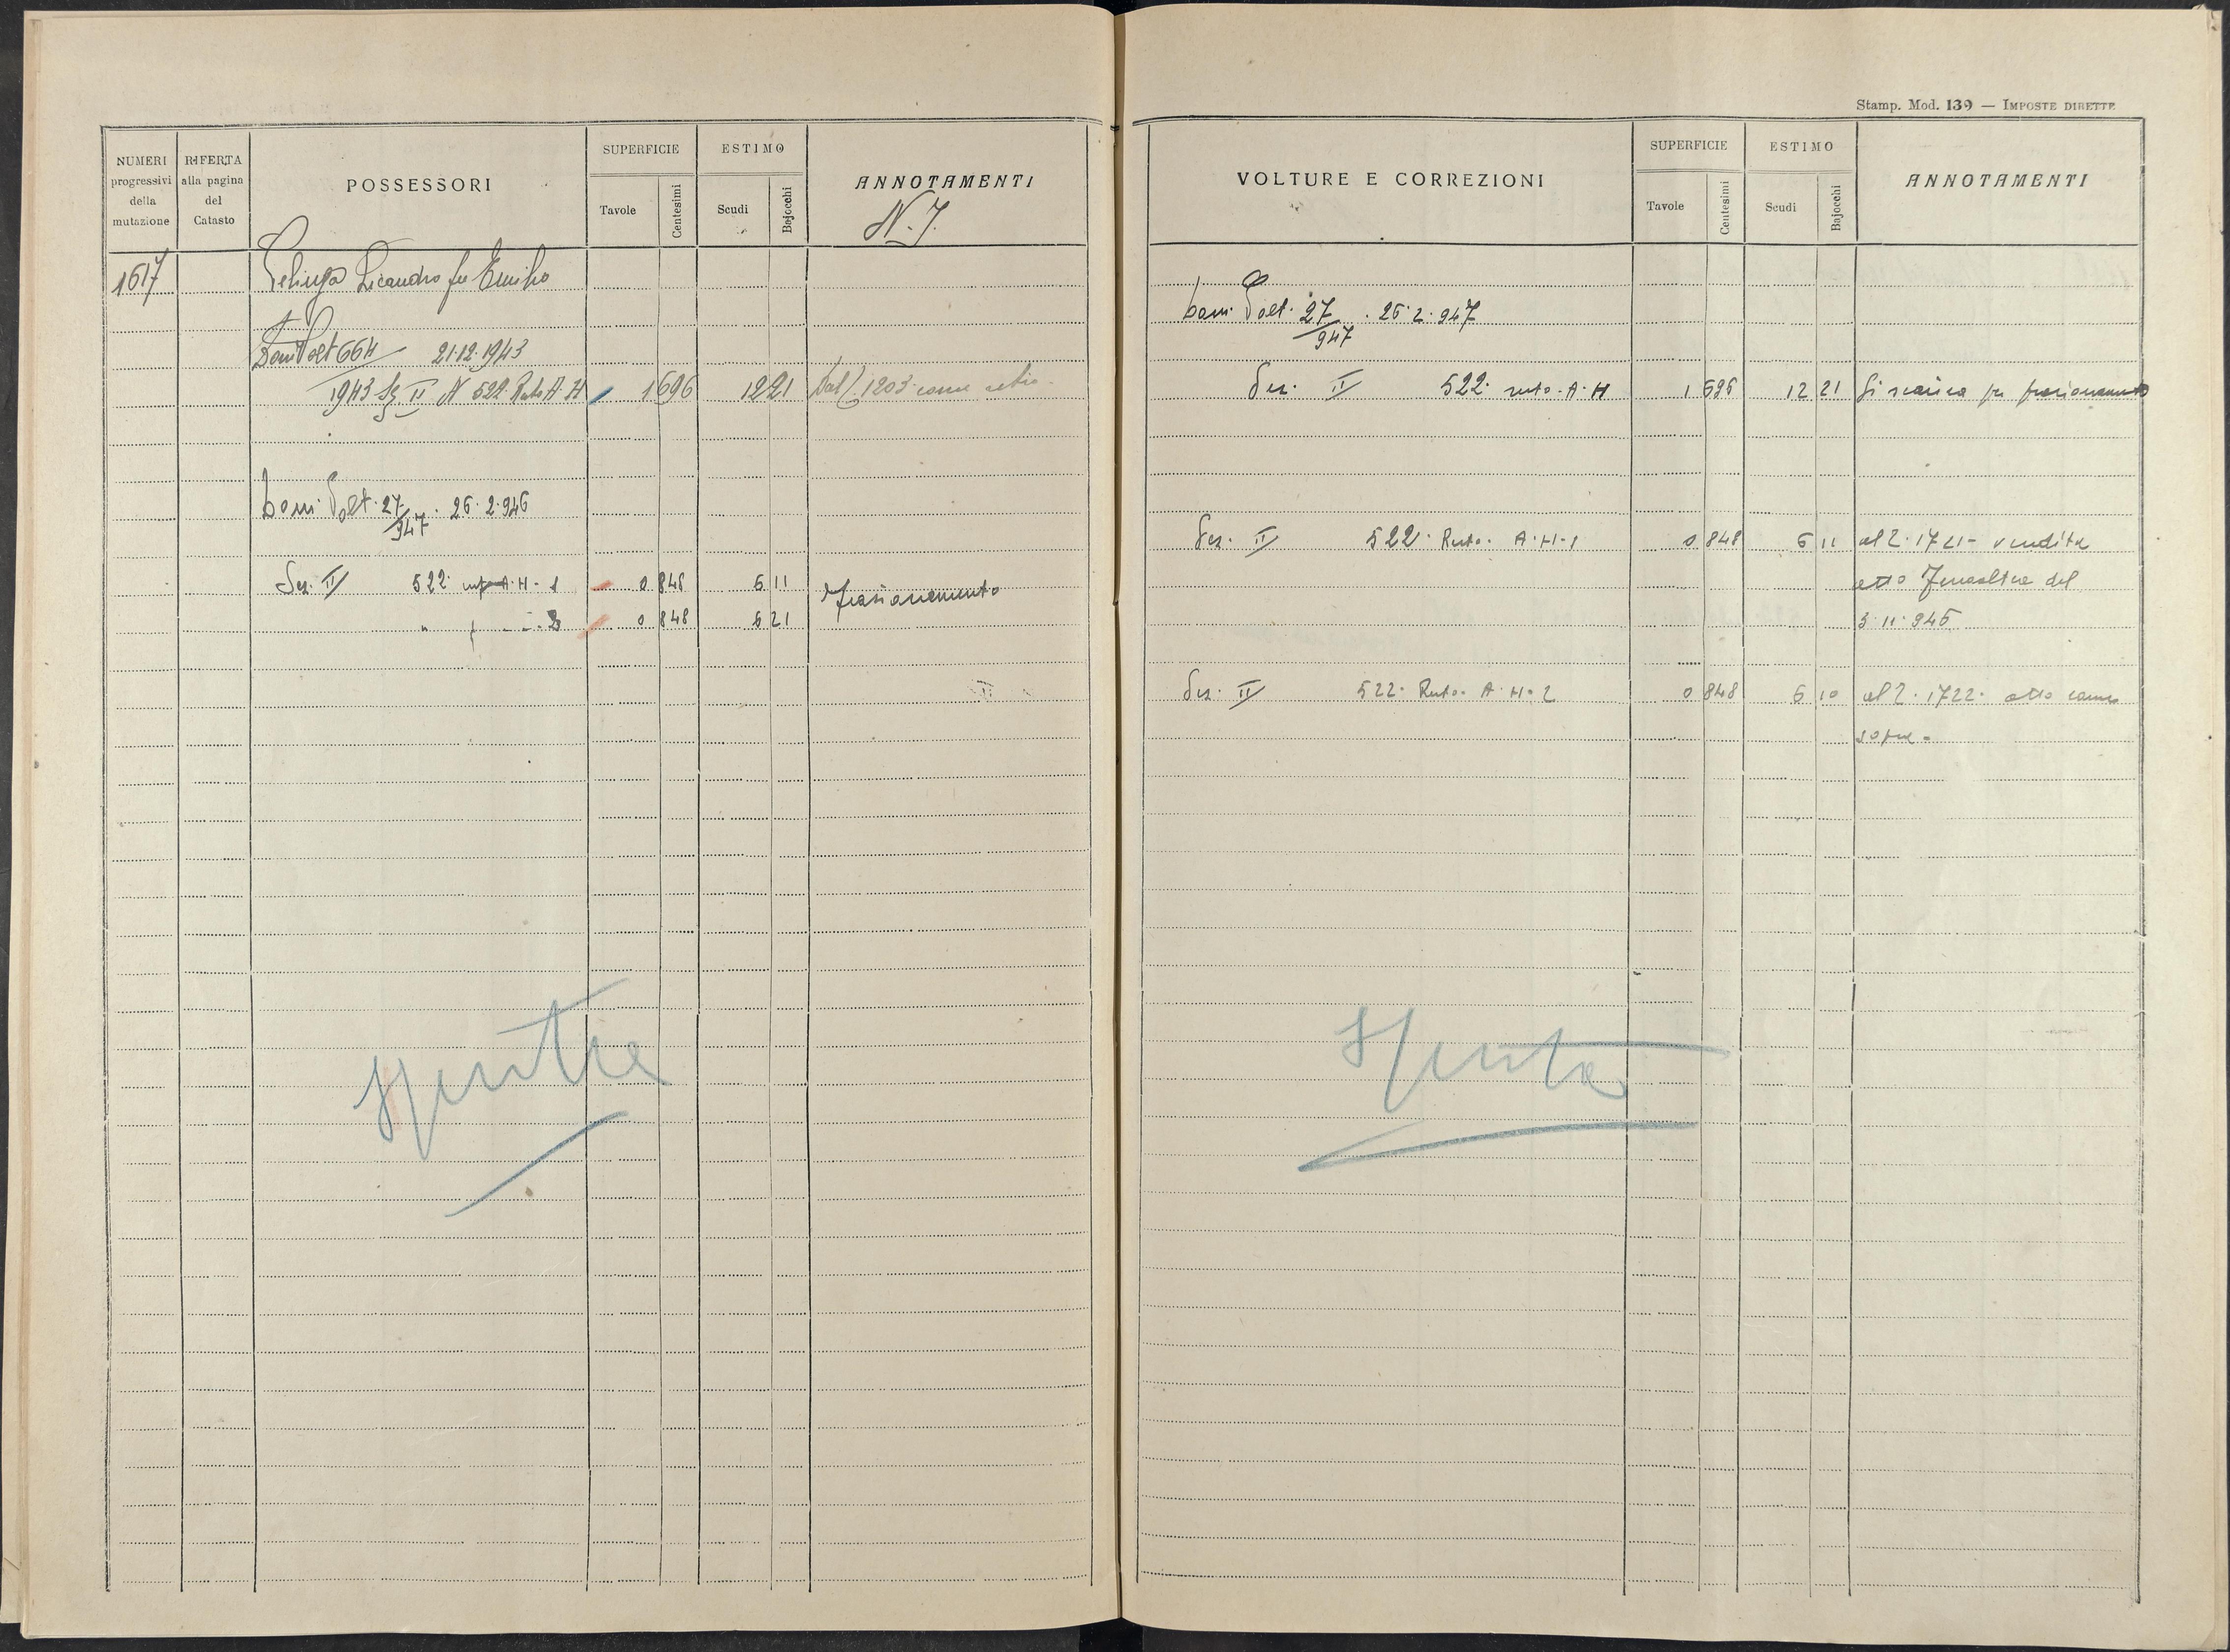 NUMERI progressivi della mutazione
RIFERTA alla pagina del Catasto
POSSESSORI
SUPERFICIE
Tavole
Centesimi
ESTIMO
Scudi
Bajocchi
ANNOTAMENTI
N. 7.
1617
Licandro fu Emilio
664 21.12.1943
1943 Sez II N 522 Rusto A. H 1 696 12 21 Dal 1203 come retro
Dom. Volt. 27/947 . 26.2.946
Sez. II 522. rusto A. H - 1 0 848 6 11 Frazionamento
" - 2 0 848 6 21
spenta
Stamp. Mod. 139 — IMPOSTE DIRETTE
VOLTURE E CORREZIONI
SUPERFICIE
Tavole
Centesimi
ESTIMO
Scudi
Bajocchi
ANNOTAMENTI
Dom. Volt. 27/947 . 26.2.947
Sez. II 522. rusto. A. H 1 696 12 21 Si scarica per frazionamento
Sez. II 522. Rusto. A. H. 1 0 848 6 11 al 2. 1721 - vendita
atto del
3. 11. 946
Sez. II 522. Rusto. A. H. 2 0 848 6 10 al 2. 1722. atto come
sopra.
spenta